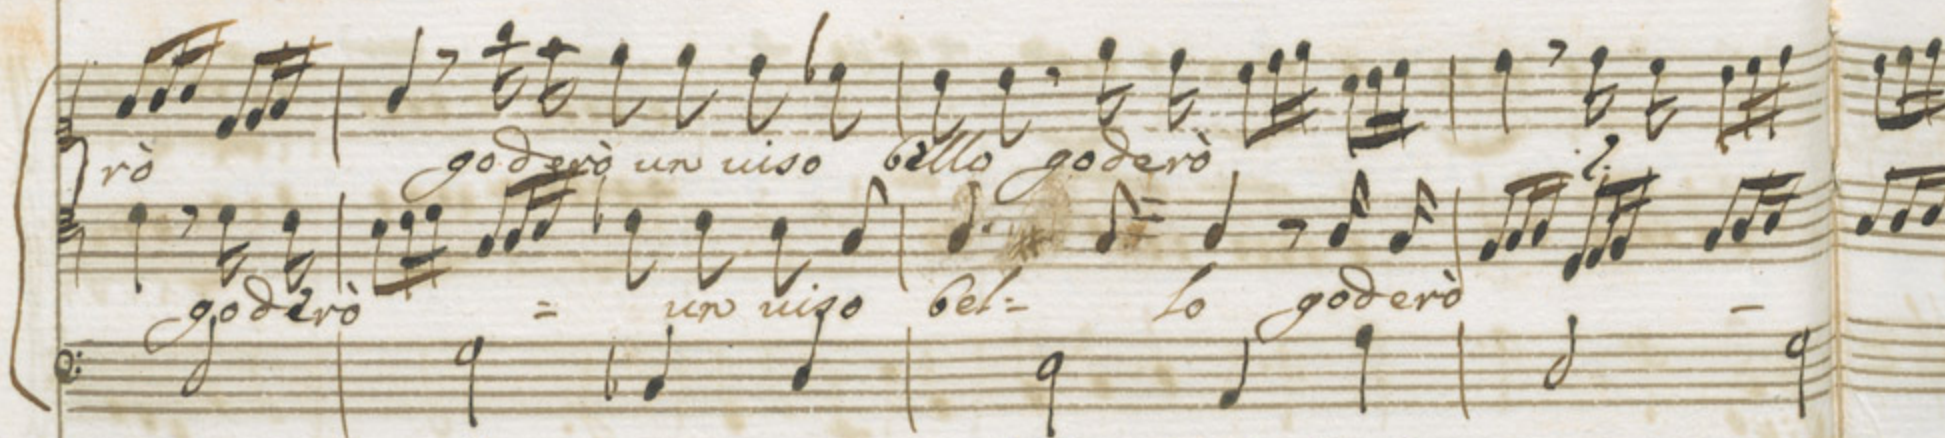 rò goderò un uiso bello goderò
goderò = un uiso bel= lo goderò _